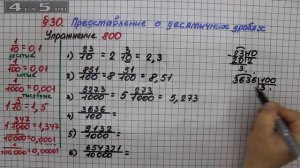 4YOU.ORG
§30. Представление о десятичных дробях.
Упражнение 800
1/10 = 0,1
десятые
1/100 = 0,01
сотые
1/1000 = 0,001
тысячные
1 5/10 = 1,5
1 347/1000 = 1,347
1/100 000 = 0,00001
1) 23/10 = 2 3/10 = 2,3
2) 851/100 = 8 51/100 = 8,51
3) 5273/1000 = 5 273/1000 = 5,273
4) 3636/100 =
5) 8132/1000 =
6) 654321/10000 =
23 10
20 2
3
3636 100
3